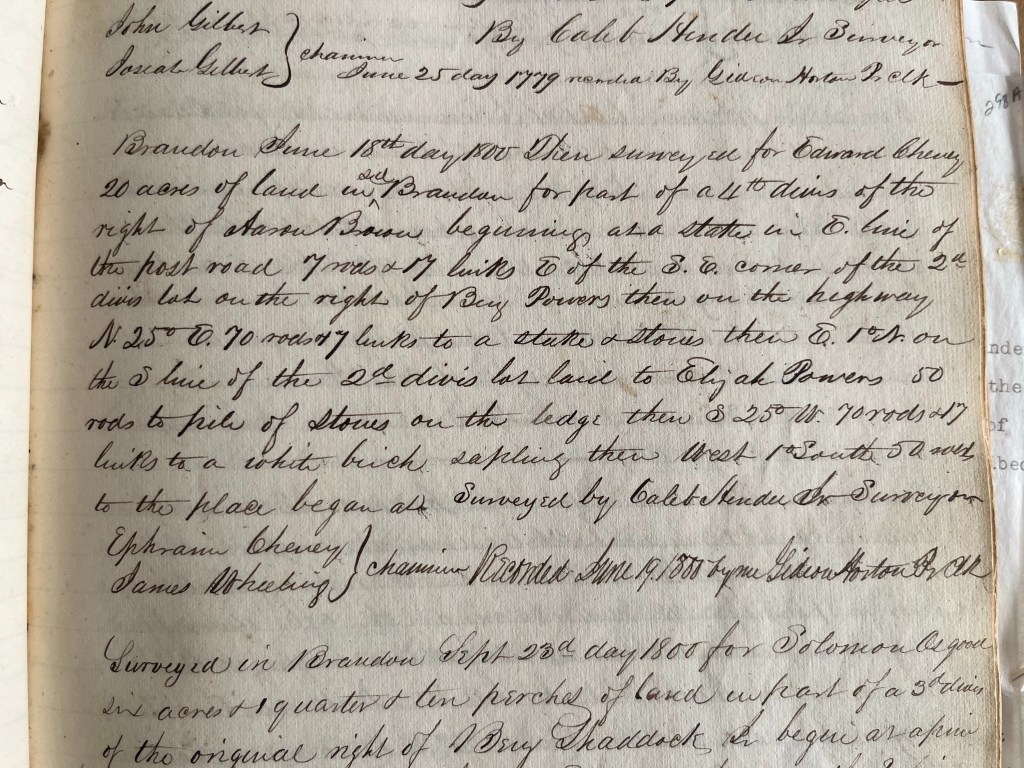 John Gilbert
Josiah Gilbert } chainmen By Caleb Hendee Jr Surveyor
June 25 day 1779 recorded By Gideon Horton Pr Clk
298 A
Brandon June 18th day 1800 Then surveyed for Edward Cheney
20 acres of land in sd Brandon for part of a 4th divis of the
right of Aaron Brown beginning at a stake in E. line of
the post road 7 rods & 17 links E of the S. E. corner of the 2d
divis lot on the right of Benj Powers then on the highway
N. 25° E. 70 rods & 17 links to a stake & stones then E. 1° N. on
the S line of the 2d divis lot laid to Elijah Powers 50
rods to pile of stones on the ledge then S 25° W. 70 rods & 17
links to a white birch sapling then West 1° South 50 rods
to the place began at Surveyed by Caleb Hendee Jr Surveyor
Ephraim Cheney
James Wheeling } chainmen Recorded June 19, 1800 by me Gideon Horton Pr Clk
Surveyed in Brandon Sept 23d day 1800 for Solomon Osgood
six acres & 1 quarter & ten perches of land in part of a 3d divis
of the original right of Benj Shaddock Jr begin at a pine
nde
the
of